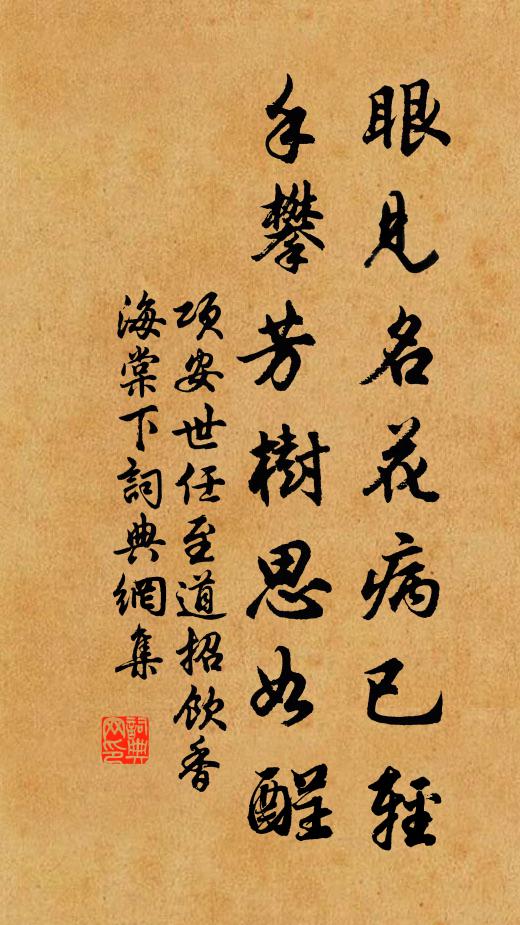 眼見名花病已輕
手攀芳樹思如酲
項安世任至道招飲香
海棠下詞典網集
詞典
网印